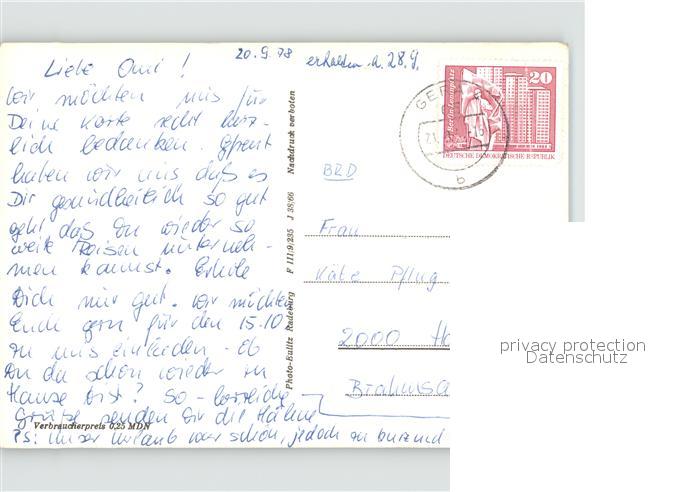 20.9.78 erhalten a. 28.9.
Liebe Omi!
wir möchten uns für
Deine Karte recht herz-
lich bedanken. Gefreut
haben wir uns daß es
Dir gesundheitlich so gut
geht daß Du wieder so
weite Reisen unterneh-
men kannst. Erhole
Dich nur gut. wir möchten
Euch gern für den 15.10.
zu uns einladen. Ob
Du da schon wieder zu
Hause bist? So-
Grüße senden Dir die
PS: Unser Urlaub war schön, jedoch zu kurz und
Verbraucherpreis 0,25 MDN
Photo-Eulitz Radeburg F III/9/235 J 38/66 Nachdruck verboten
Berlin-Leninplatz
20
DEUTSCHE DEMOKRATISCHE REPUBLIK
GERA
b
BRD
Frau
Käte Pflug
2000 Ha
Brahmsa
privacy protection
Datenschutz